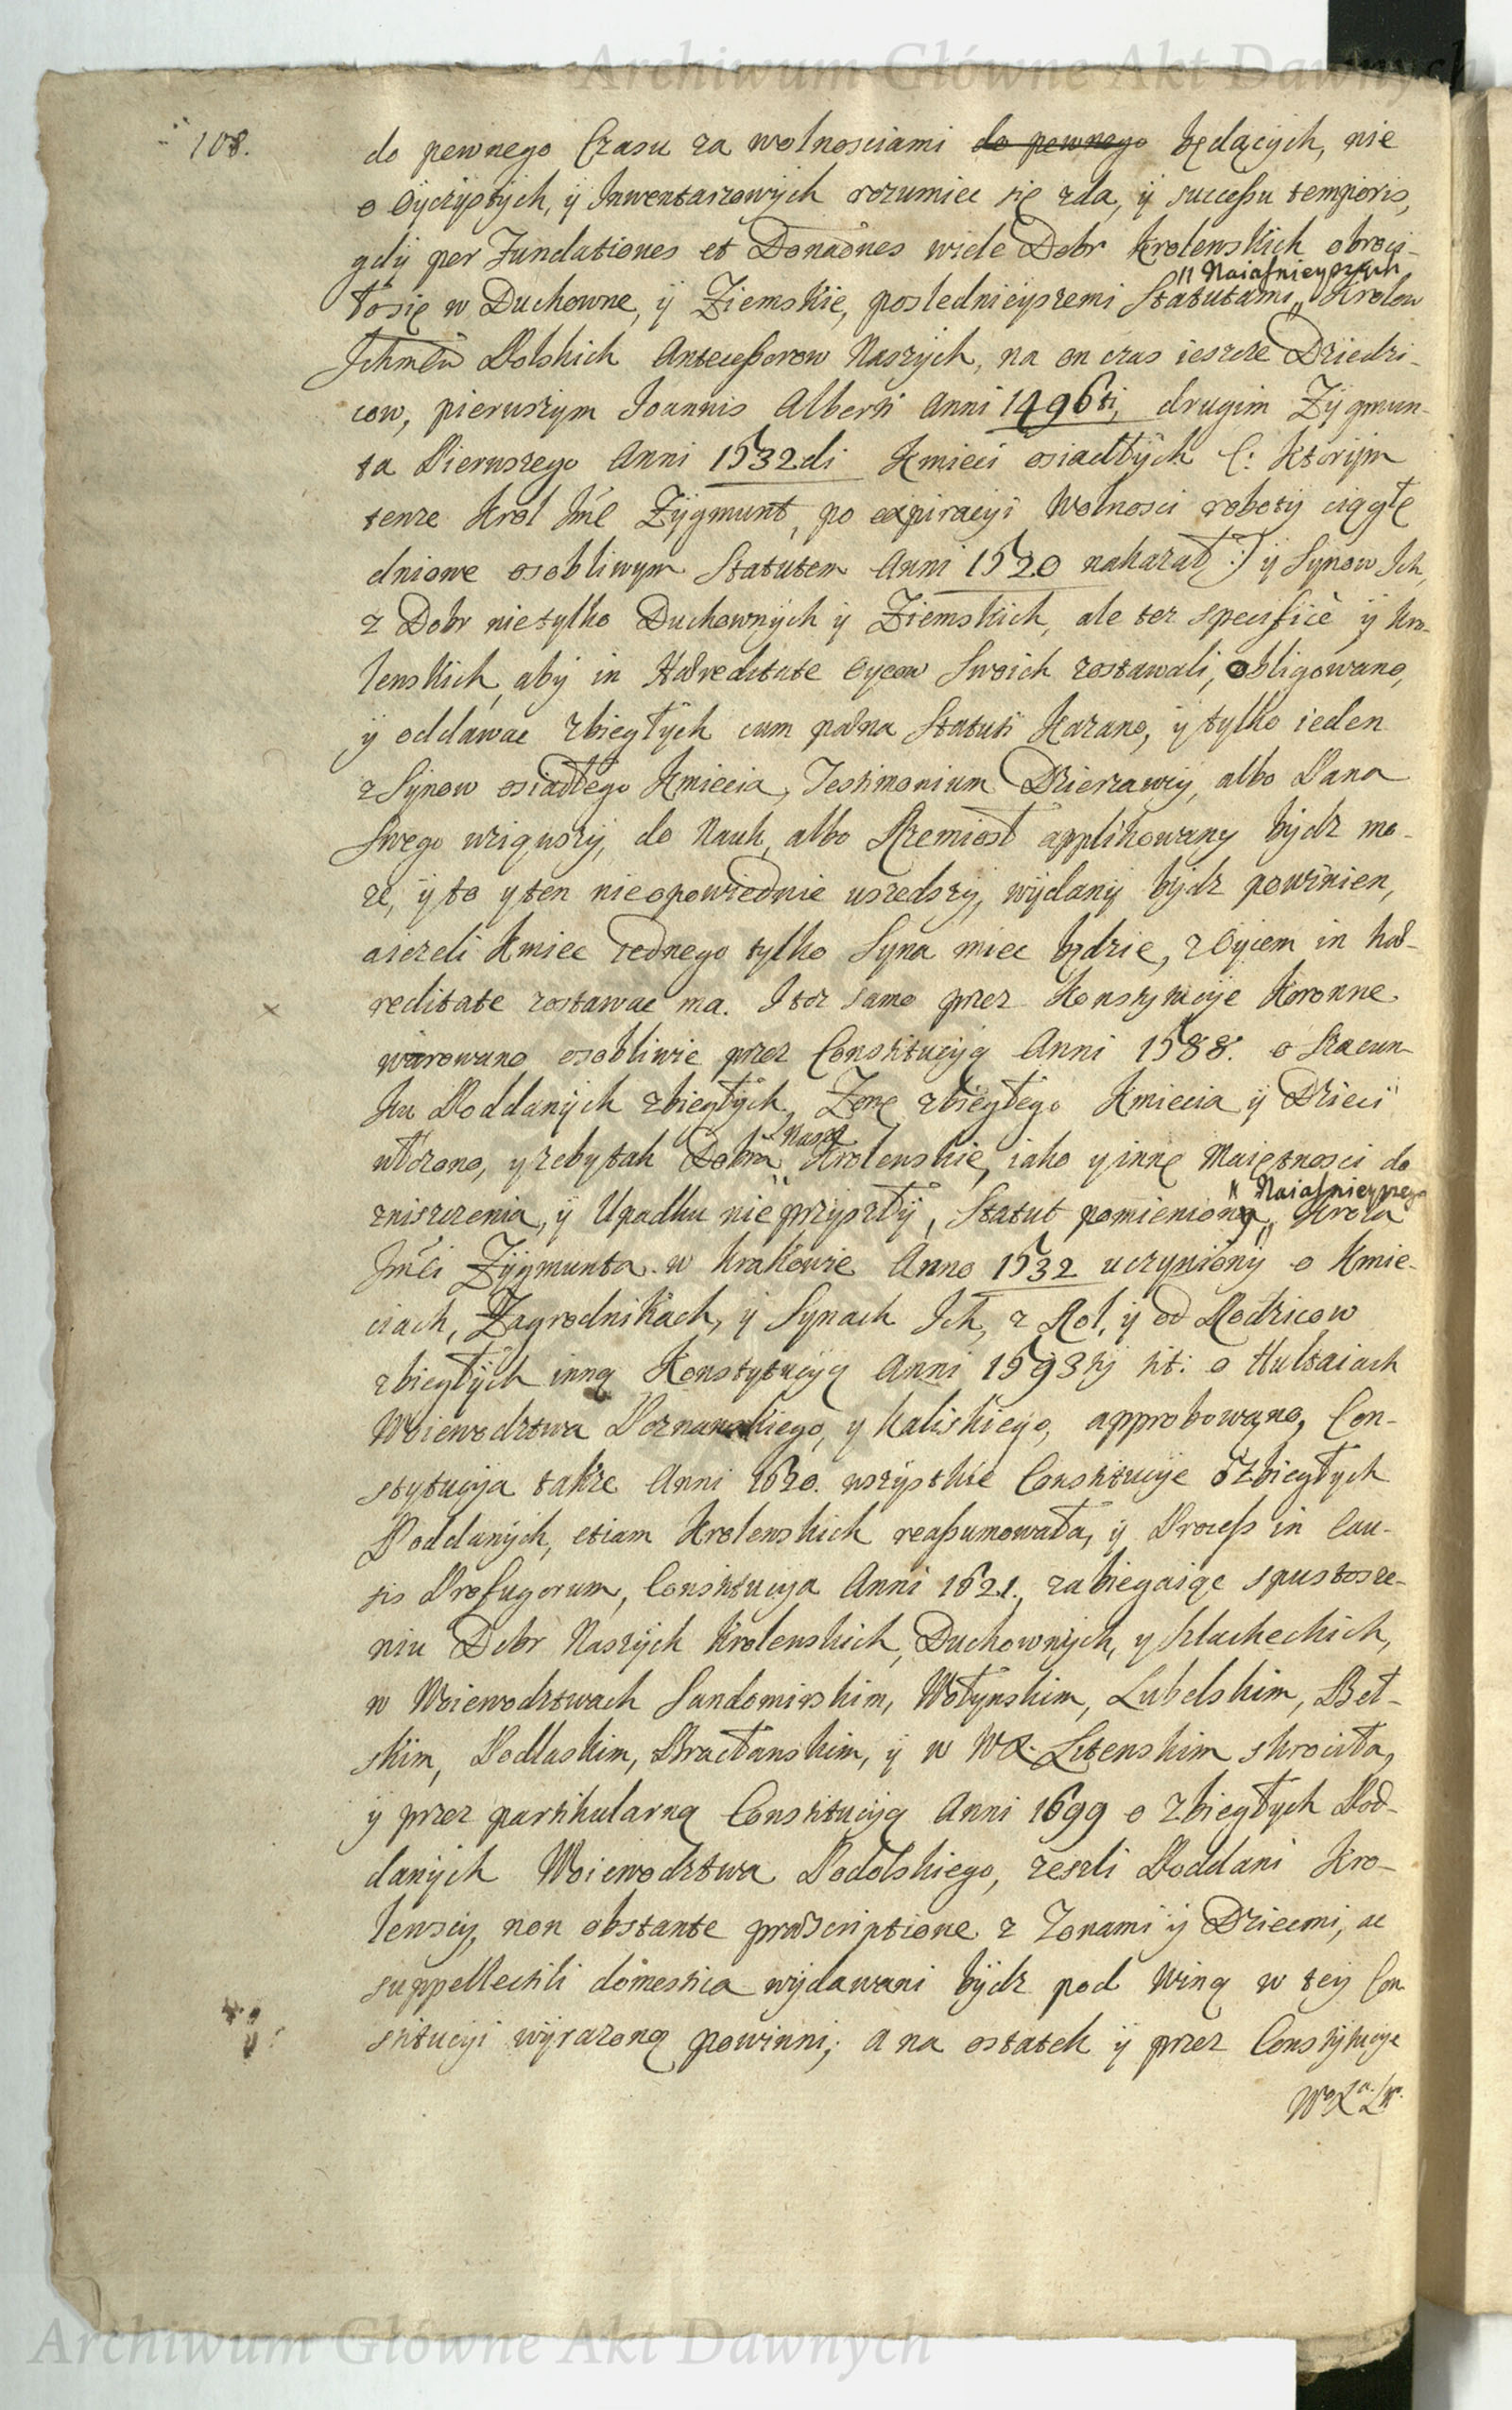 Archiwum Główne Akt Dawnych
108.
do pewnego Czasu za wolnosciami do pewnego będących, nie
o Oyczystych, ÿ Inwentarzowÿch rozumiec się zda, ÿ successu temporis,
gdÿ per Fundationes et Donaões wiele Dobr Krolewskich obroci-
ło się w Duchowne, ÿ Ziemskie, poslednieyszemi Statutami „ Krolow
„ Naiasnieyszych
Ichmciw Polskich Antecessorow Naszych, na on czas ieszcze Dziedzi-
cow, pierwszym Joannis Alberti Anni 1496ti, drugim Zÿgmun-
ta Pierwszego Anni 1532di Kmieci osiadłÿch (: Ktorÿm
tenze Krol Jmć Zÿgmunt, po expiracÿi Wolnosci robotÿ ciągłe
dniowe osobliwym Statutem Anni 1520 nakazał :) ÿ Synow Ich,
z Dobr nie tylko Duchownÿch ÿ Ziemskich, ale tez specificè ÿ Kro-
lewskich, abÿ in Hæreditate Oycow Swoich zostawali, obligowano,
ÿ oddawac zbiegłÿch cum pæna Statuti Kazano, ÿ tylko ieden
z Synow osiadłego Kmiecia, Testimonium Dzierzawcÿ, albo Pana
Swego wziąwszÿ, do Nauk, albo Rzemiosł applikowany bydz mo-
ze, ÿ to y ten nieopowiednie uszedszÿ, wÿdanÿ bÿdz powinien,
a iezeli Kmiec iednego tylko Syna miec będzie, z Oycem in hæ-
reditate zostawac ma. I toz samo przez Konstytucÿe Koronne
warowano, osobliwie przez Constitucÿą Anni 1588. o Szacun-
ku Poddanÿch zbiegłÿch, Zonę zbiegłego Kmiecia ÿ Dzieci
włozono, y zeby tak Dobra „ Krolewskie, iako y inne Maiętnosci do
„ Nasze
zniszczenia, ÿ Upadku nie przyszłÿ, Statut pomieniony „ Krola
„ Naiasnieyszego
Jmći Zÿgmunta w Krakowie Anno 1532 uczyniony o Kmie-
ciach, Zagrodnikach, ÿ Synach Ich, z Rol, ÿ od Rodzicow
zbiegłÿch inną Konstytucÿą Anni 1593 tÿ tit: o Hultaiach
Woiewodztwa Poznanskiego, y Kaliskiego, approbowano, Con-
stytucÿa takze Anni 1620. wszÿstkie Constitucÿe o zbiegłych
Poddanÿch, etiam Krolewskich reassumowała, ÿ Process in Cau-
sis Profugorum, Constitucÿa Anni 1621., zabiegaiąc spustosze-
niu Dobr Naszÿch Krolewskich, Duchownÿch, y szlacheckich,
w Woiewodztwach Sandomirskim, Wołynskim, Lubelskim, Beł-
skim, Podlaskim, Bracławskim, ÿ w WX. Litewskim skrociła,
ÿ przez partikularną Constitucÿą Anni 1699 o zbiegłych Pod-
danÿch Woiewodztwa Podolskiego, zeszli Poddani Kro-
lewscÿ, non obstante præscriptione z Zonami ÿ Dziecmi, ac
suppellectili domestica wÿdawani bÿdz pod Winą w teÿ Con
stitucÿi wÿrazoną powinni; a na ostatek ÿ przez Constÿtucÿe
Wo Xa Lgo.
Archiwum Główne Akt Dawnych